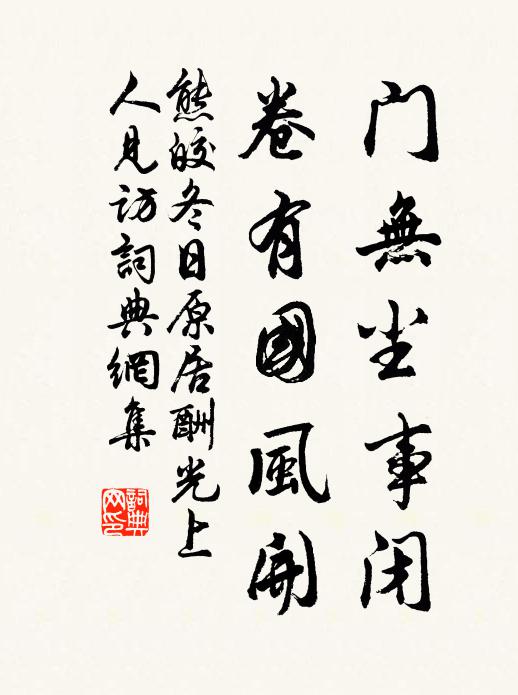 门無尘事闭
卷有國風開
熊皎冬日原居酬光上
人見访詞典網集
詞典网印